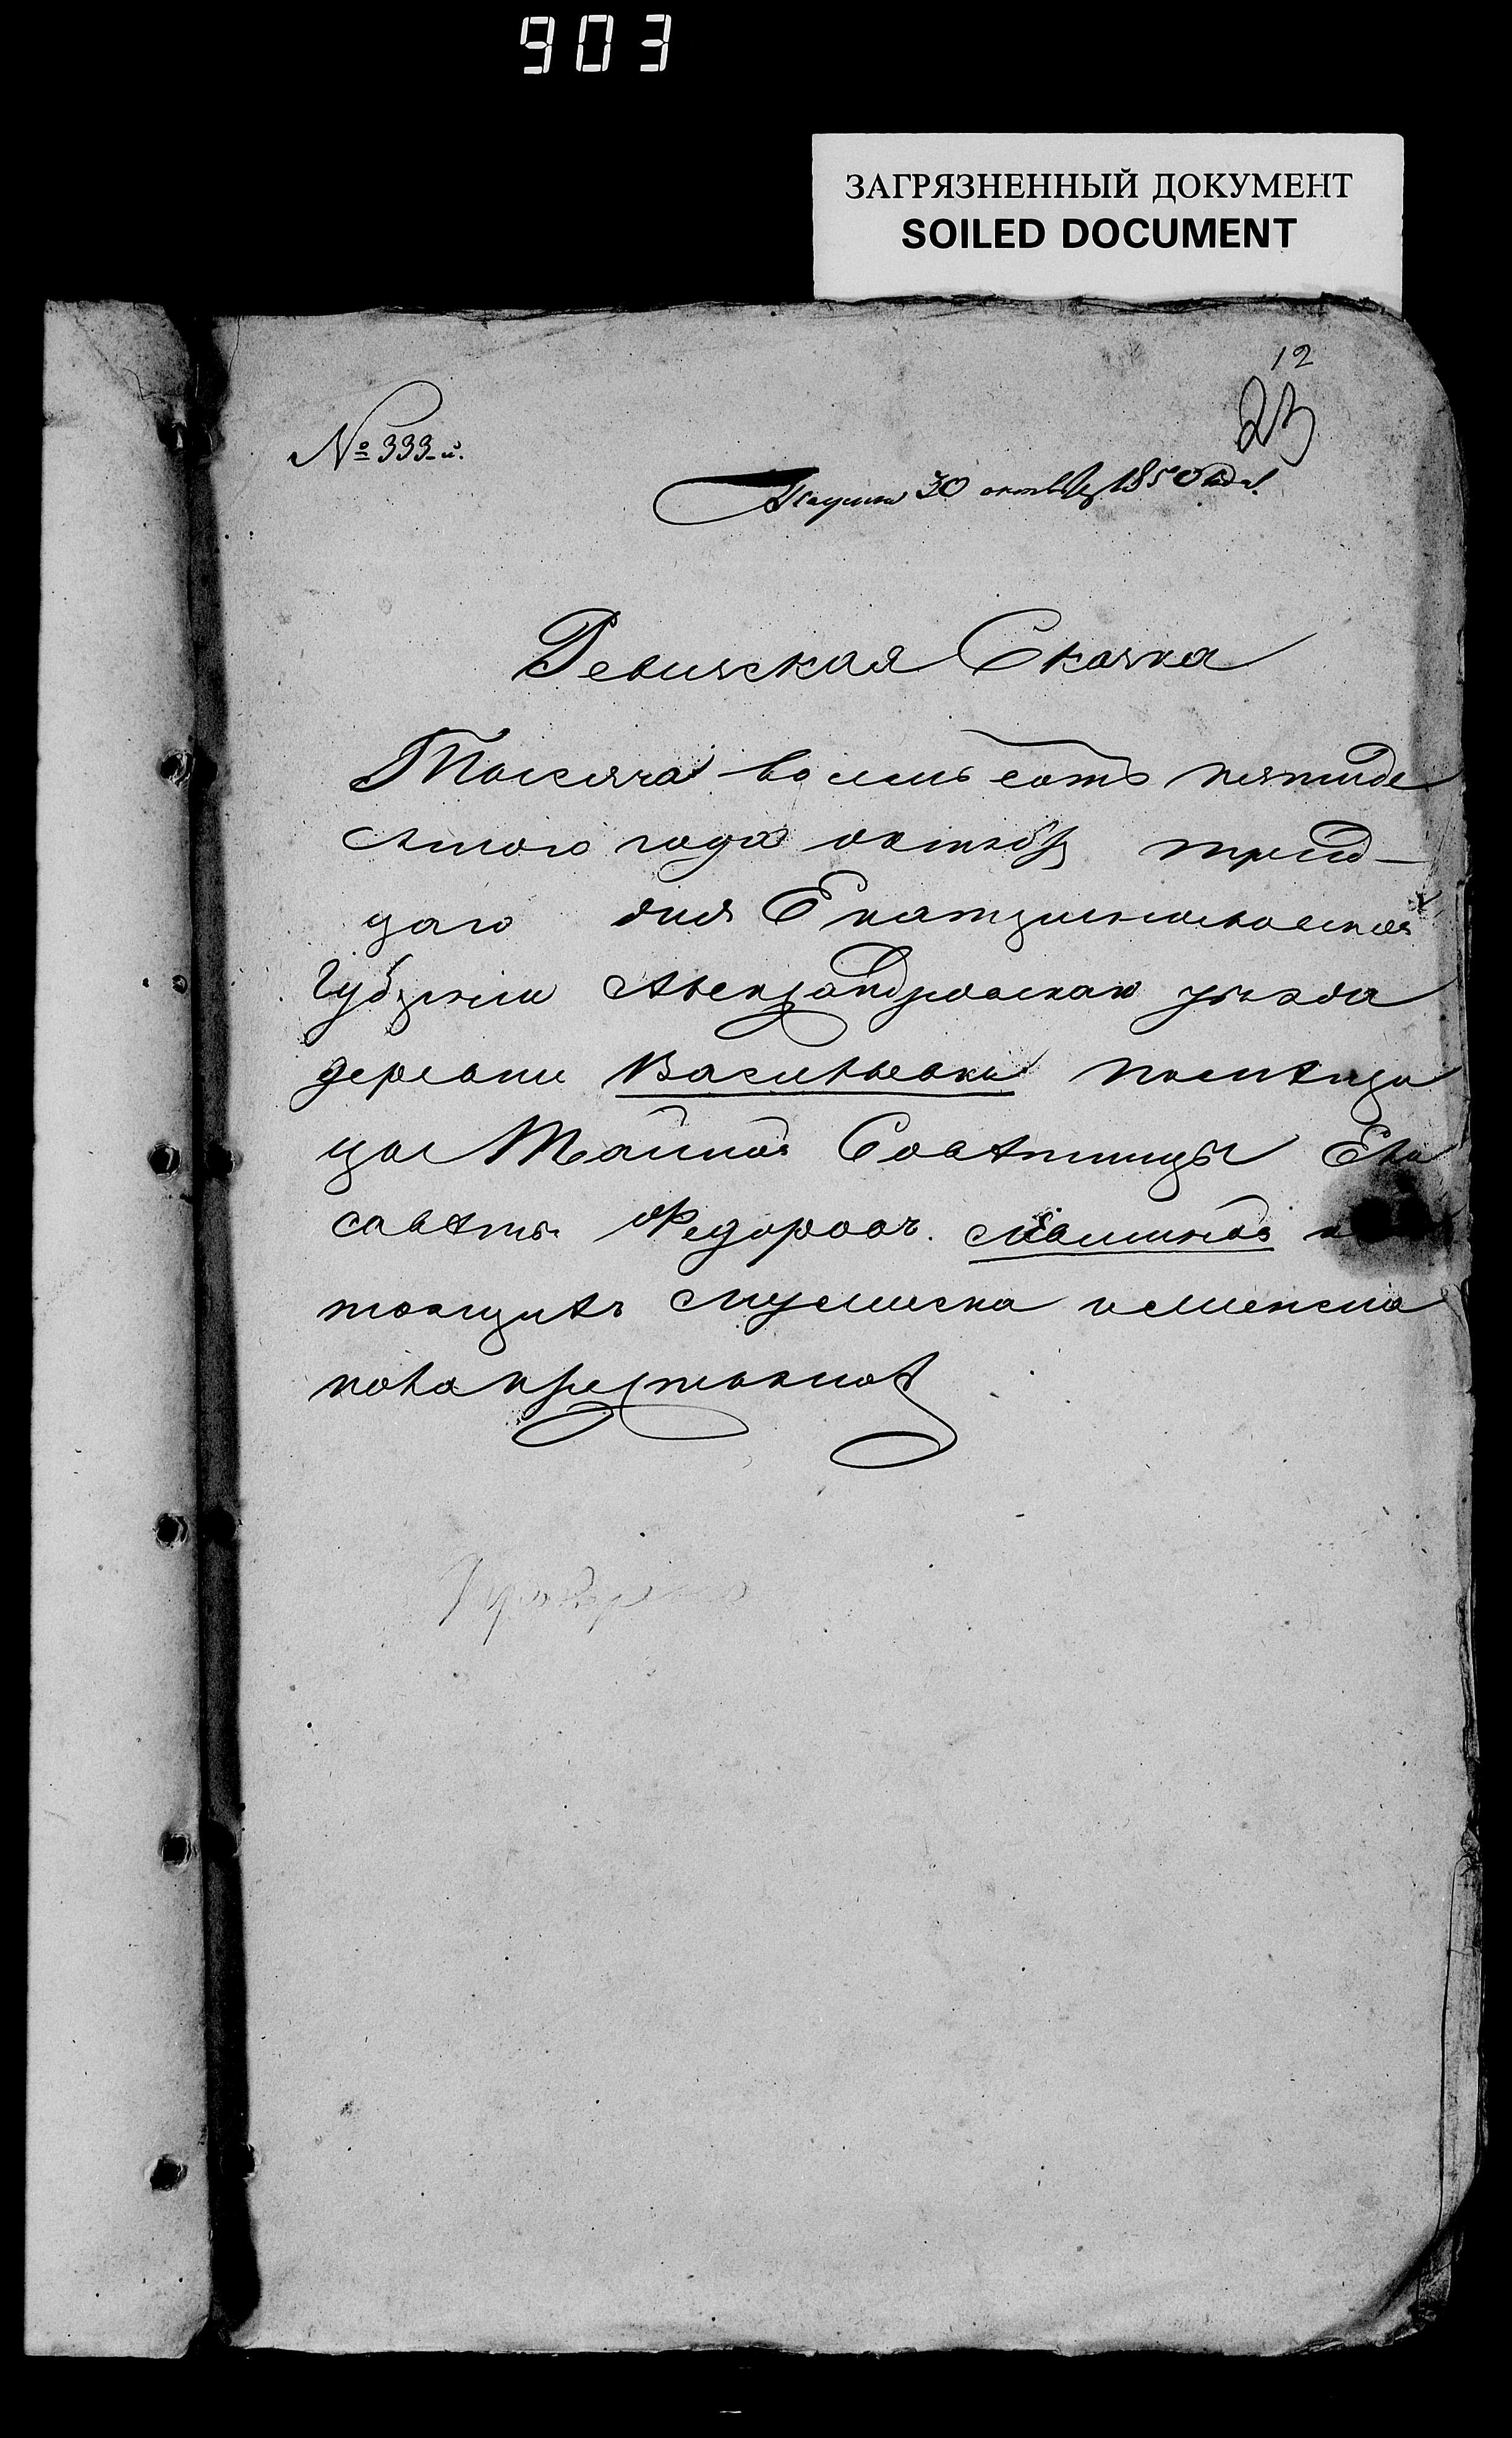 903
ЗАГРЯЗНЕННЫЙ ДОКУМЕНТ
SOILED DOCUMENT
12
23
№ 333-й.
30 октября 1850 года
Ревизская Сказка
Тысяча восемь сотъ пятиде
сятого года октября трид-
цаго дня Екатеринославской
Губерніи Александровскаго уезда
деревни Васильевки помѣщи
цы Тайной Совѣтницы Ели
саветы Федоровн.
мужеска и женска
пола крестьянов
Проверено